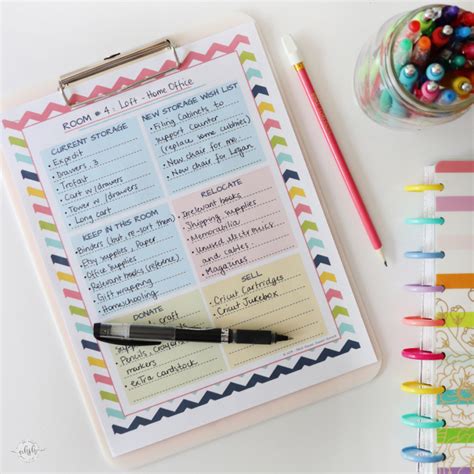 ROOM # 4 : Loft - Home Office
CURRENT STORAGE
Expedit
Drawers : 3
Trofast
Cart w/ drawers
Tower w/ drawers
Long cart
NEW STORAGE WISH LIST
Filing Cabinets to
support counter
(replace some cubbies)
New chair for me
New chair for Logan
KEEP IN THIS ROOM
Binders (but re-sort them)
Etsy supplies, Paper
Office supplies
Relevant books (reference)
Gift wrapping
Homeschooling
RELOCATE
Irrelevant books
Shipping supplies
Memorabilia
Unused electronics
and cables
Magazines
DONATE
craft
supp
Pencils, crayons
markers
extra cardstock
SELL
Cricut Cartridges
Cricut Jukebox